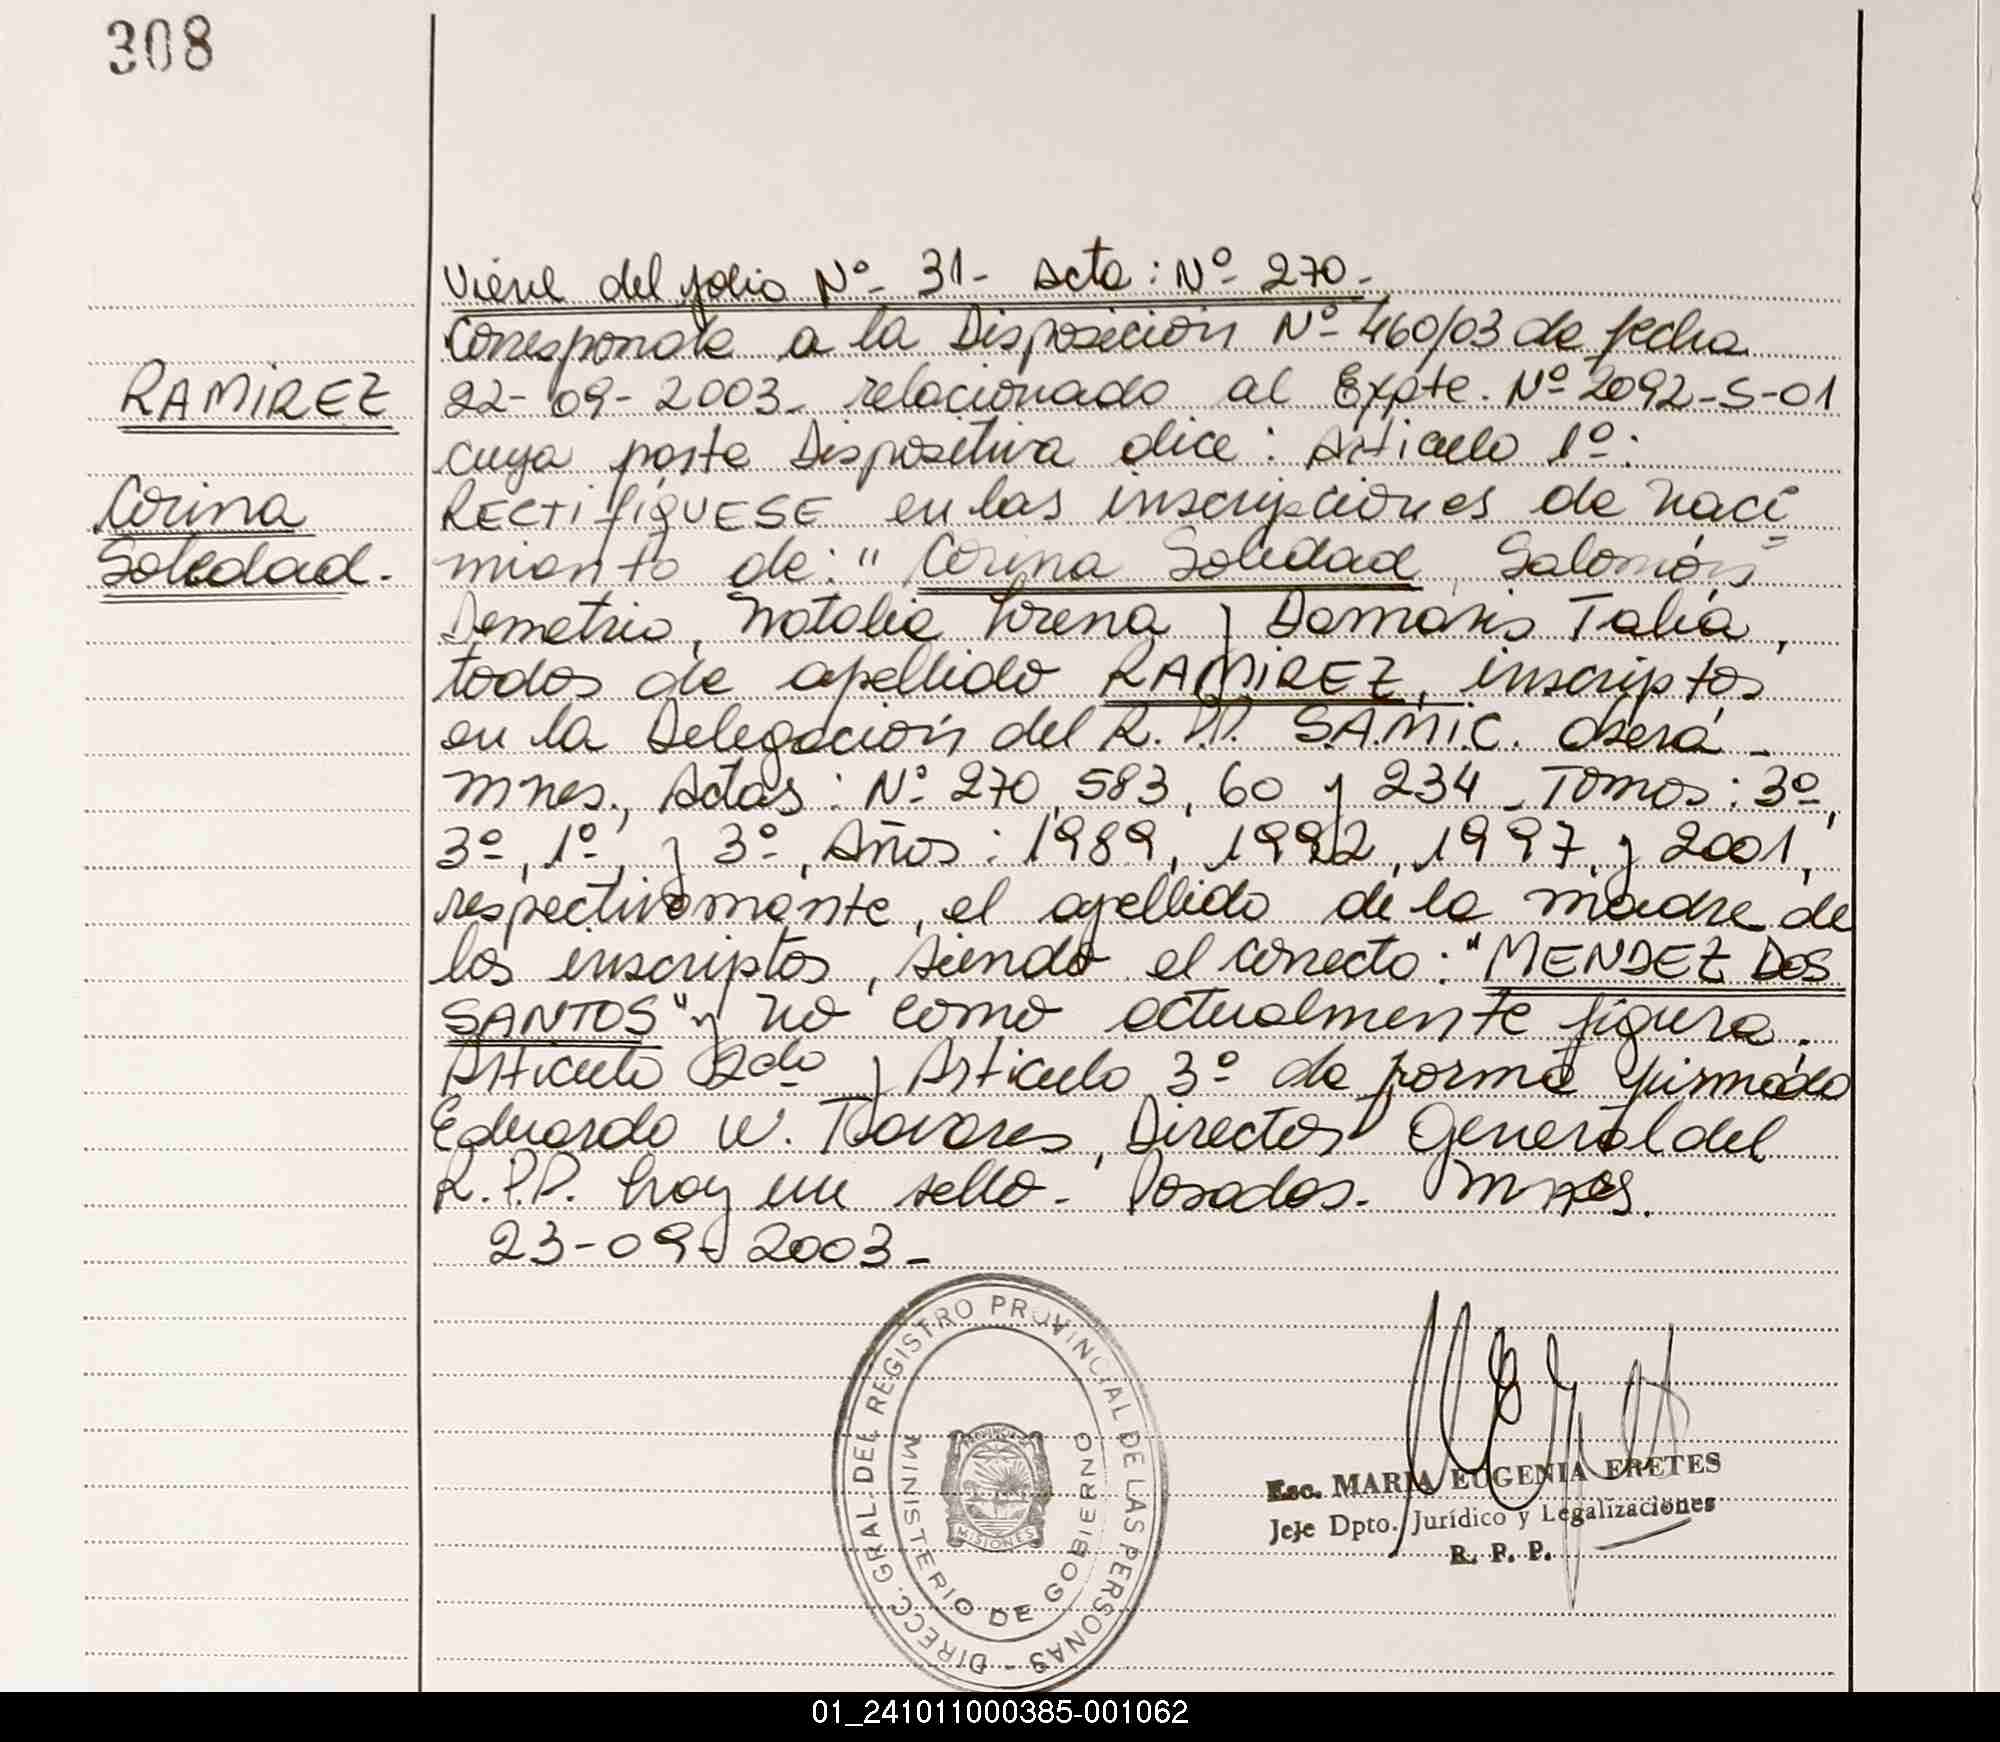 308
RAMIREZ
Corina
Soledad.
Viene del folio Nº 31- Acta: Nº 270-
Corresponde a la Disposición Nº 460/03 de fecha
22-09-2003- relacionado al Expte. Nº 2092-S-01
cuya parte Dispositiva dice: Artículo 1º:
RECTIFÍQUESE en las inscripciones de naci=
miento de: "Corina Soledad, Salomón
Demetrio, Natalia Lorena y Damaris Talía,
todos de apellido RAMIREZ, inscriptos
en la Delegación del R.P.P. S.A.M.I.C. Oberá-
Mnes., Actas: Nº 270, 583, 60 y 234- Tomos: 3º,
3º, 1º, y 3º, Años: 1989, 1992, 1997, y 2001,
respectivamente, el apellido de la madre de
los inscriptos, siendo el correcto: "MENDEZ DOS
SANTOS" y no como actualmente figura.
Artículo 2do y Artículo 3º de forma firmado
Eduardo W. Tavares, Director General del
R.P.P. hay un sello- Posadas- Mnes.
23-09-2003-
DIRECC. GRAL. DEL REGISTRO PROVINCIAL DE LAS PERSONAS -
MINISTERIO DE GOBIERNO
MISIONES
Esc. MARIA EUGENIA ERETES
Jefe Dpto. Jurídico y Legalizaciones
R. P. P.
01_241011000385-001062